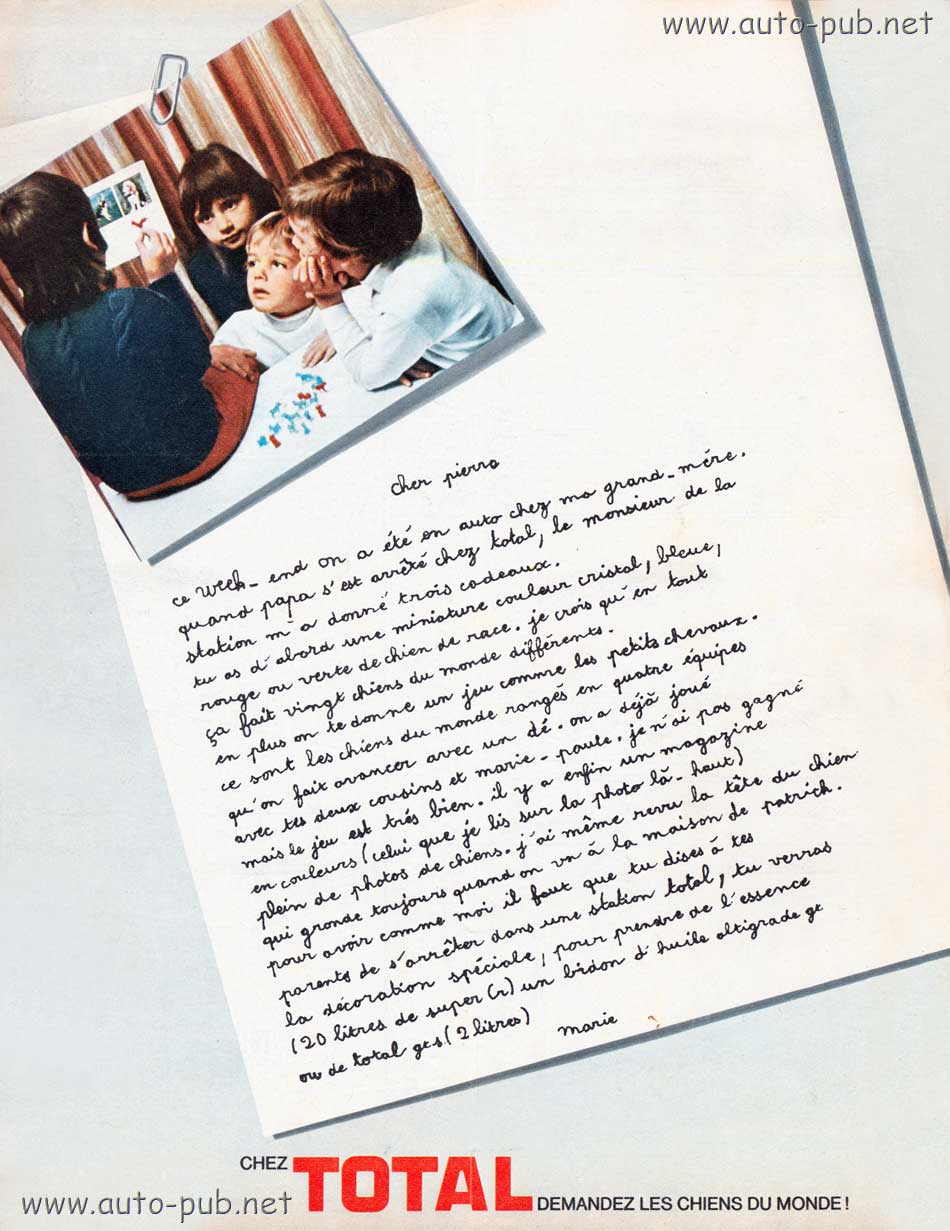 www.auto-pub.net
cher pierre
ce week-end on a été en auto chez ma grand-mère.
quand papa s'est arrêté chez total, le monsieur de la
station m'a donné trois cadeaux.
tu as d'abord une miniature couleur cristal, bleue,
rouge ou verte de chien de race. je crois qu'en tout
ça fait vingt chiens du monde différents.
en plus on te donne un jeu comme les petits chevaux.
ce sont les chiens du monde rangés en quatre équipes
qu'on fait avancer avec un dé. on a déjà joué
avec tes deux cousins et marie-paule. je n'ai pas gagné
mais le jeu est très bien. il y a enfin un magazine
en couleurs (celui que je lis sur la photo là-haut)
plein de photos de chiens. j'ai même revu la tête du chien
qui gronde toujours quand on va à la maison de patrick.
pour avoir comme moi il faut que tu dises à tes
parents de s'arrêter dans une station total, tu verras
la décoration spéciale, pour prendre de l'essence
(20 litres de super (r) un bidon d'huile altigrade gt
ou de total gts (2 litres)
marie
CHEZ TOTAL DEMANDEZ LES CHIENS DU MONDE !
www.auto-pub.net